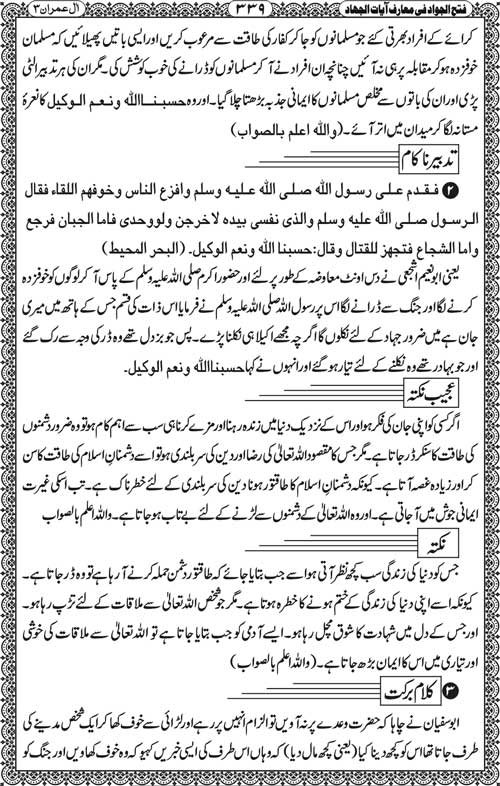 فتح الجواد فی معارف آیات الجہاد
۳۳۹
آل عمران ۳
کرائے کے افراد بھرتی کئے جو مسلمانوں کو جا کر کفار کی طاقت سے مرعوب کریں اور ایسی باتیں پھیلائیں کہ مسلمان
خوفزدہ ہو کر مقابلہ پر ہی نہ آئیں چنانچہ ان افراد نے آ کر مسلمانوں کو ڈرانے کی خوب کوشش کی۔ مگر ان کی ہر تدبیر الٹی
پڑی اور ان کی باتوں سے مخلص مسلمانوں کا ایمانی جذبہ بڑھتا چلا گیا۔ اور وہ حسبنا اللہ ونعم الوکیل کا نعرۂ
مستانہ لگا کر میدان میں اتر آئے۔ (واللہ اعلم بالصواب)
تدبیر ناکام
۲ فقدم علی رسول اللہ صلی اللہ علیہ وسلم وافزع الناس وخوفهم اللقاء فقال
الرسول صلی اللہ علیہ وسلم والذی نفسی بیدہ لاخرجن ولووحدی فاما الجبان فرجع
واما الشجاع فتجهز للقتال وقال: حسبنا اللہ ونعم الوکیل. (البحر المحیط)
یعنی ابونعیم اشجعی نے دس اونٹ معاوضہ کے طور پر لئے اور حضور اکرم صلی اللہ علیہ وسلم کے پاس آ کر لوگوں کو خوفزدہ
کرنے لگا اور جنگ سے ڈرانے لگا اس پر رسول اللہ صلی اللہ علیہ وسلم نے فرمایا اس ذات کی قسم! جس کے ہاتھ میں میری
جان ہے میں ضرور جہاد کے لئے نکلوں گا اگرچہ مجھے اکیلا ہی نکلنا پڑے۔ پس جو بزدل تھے وہ ڈر کی وجہ سے رک گئے
اور جو بہادر تھے وہ نکلنے کے لئے تیار ہو گئے اور انہوں نے کہا حسبنا اللہ ونعم الوکیل۔
عجیب نکتہ
اگر کسی کو اپنی جان کی فکر ہو اور اس کے نزدیک دنیا میں زندہ رہنا اور مزے کرنا ہی سب سے اہم کام ہو تو وہ ضرور دشمنوں
کی طاقت کا سنکر ڈر جاتا ہے۔ مگر جس کا مقصود اللہ تعالیٰ کی رضا اور دین کی سربلندی ہو تو اسے دشمنانِ اسلام کی طاقت کا سن
کر اور زیادہ غصہ آتا ہے۔ کیونکہ دشمنانِ اسلام کا طاقتور ہونا دین کی سربلندی کے لئے خطرناک ہے۔ تب اسکی غیرت
ایمانی جوش میں آ جاتی ہے۔ اور وہ اللہ تعالیٰ کے دشمنوں سے لڑنے کے لئے بے تاب ہو جاتا ہے۔ واللہ اعلم بالصواب
نکتہ
جس کو دنیا کی زندگی سب کچھ نظر آتی ہو اسے جب بتایا جائے کہ طاقتور دشمن حملہ کرنے آ رہا ہے تو وہ ڈر جاتا ہے۔
کیونکہ اسے اپنی دنیا کی زندگی کے ختم ہونے کا خطرہ ہوتا ہے۔ مگر جو شخص اللہ تعالیٰ سے ملاقات کے لئے تڑپ رہا ہو۔
اور جس کے دل میں شہادت کا شوق مچل رہا ہو۔ ایسے آدمی کو جب بتایا جاتا ہے تو اللہ تعالیٰ سے ملاقات کی خوشی
اور تیاری میں اس کا ایمان بڑھ جاتا ہے۔ (واللہ اعلم بالصواب)
۳ کلام برکت
ابوسفیان نے چاہا کہ حضرت وعدے پر نہ آویں تو الزام انہیں پر رہے اور لڑائی سے خوف کھا کر ایک شخص مدینے کی
طرف جاتا تھا اس کو کچھ دینا کیا (یعنی کچھ مال دیا) کہ وہاں اس طرف کی ایسی خبریں کہیو کہ وہ خوف کھاویں اور جنگ کو